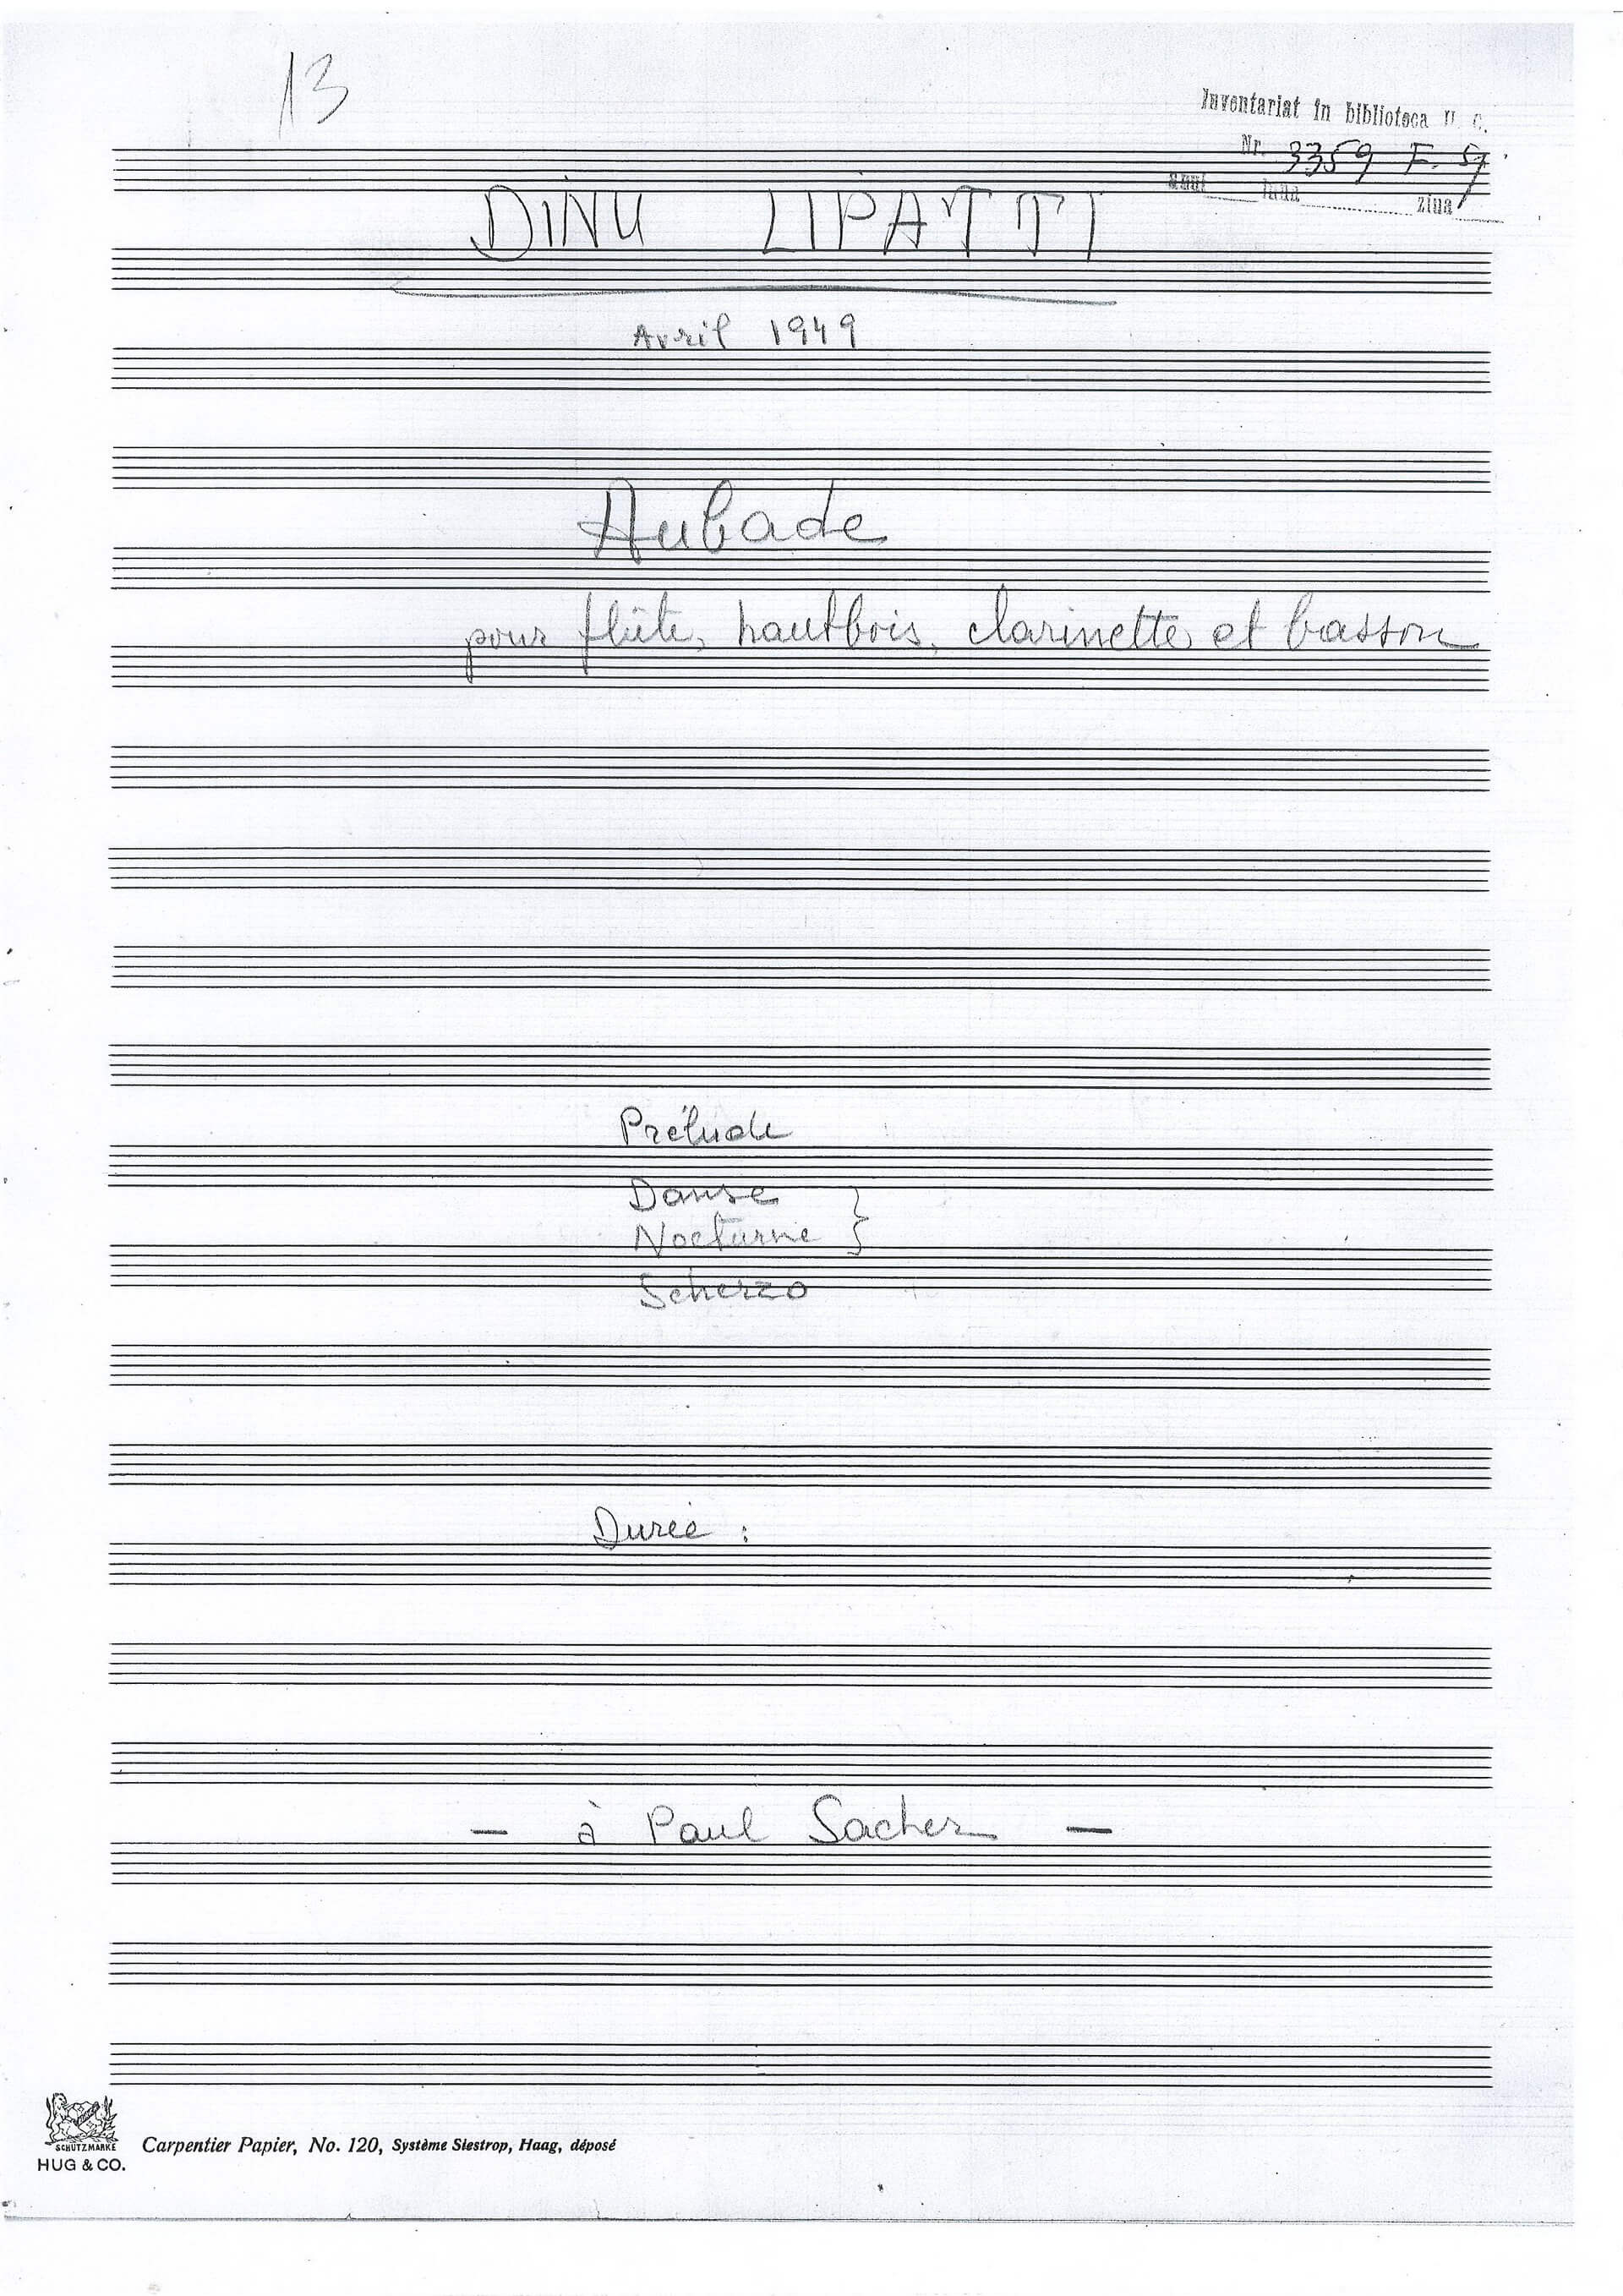 13
Inventariat in biblioteca U. C.
Nr. 3359 F. 57
anul luna ziua
DINU LIPATTI
Avril 1949
Aubade
pour flûte, hautbois, clarinette et basson
Prélude
Danse
Nocturne }
Scherzo
Durée :
– à Paul Sacher –
SCHUTZMARKE
HUG & CO.
Carpentier Papier, No. 120, Système Siestrop, Haag, déposé